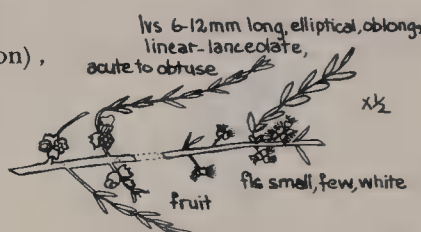 lvs 6-12mm long, elliptical, oblong,
linear-lanceolate,
on),
acute to obtuse
x½
fruit
fls small, few, white